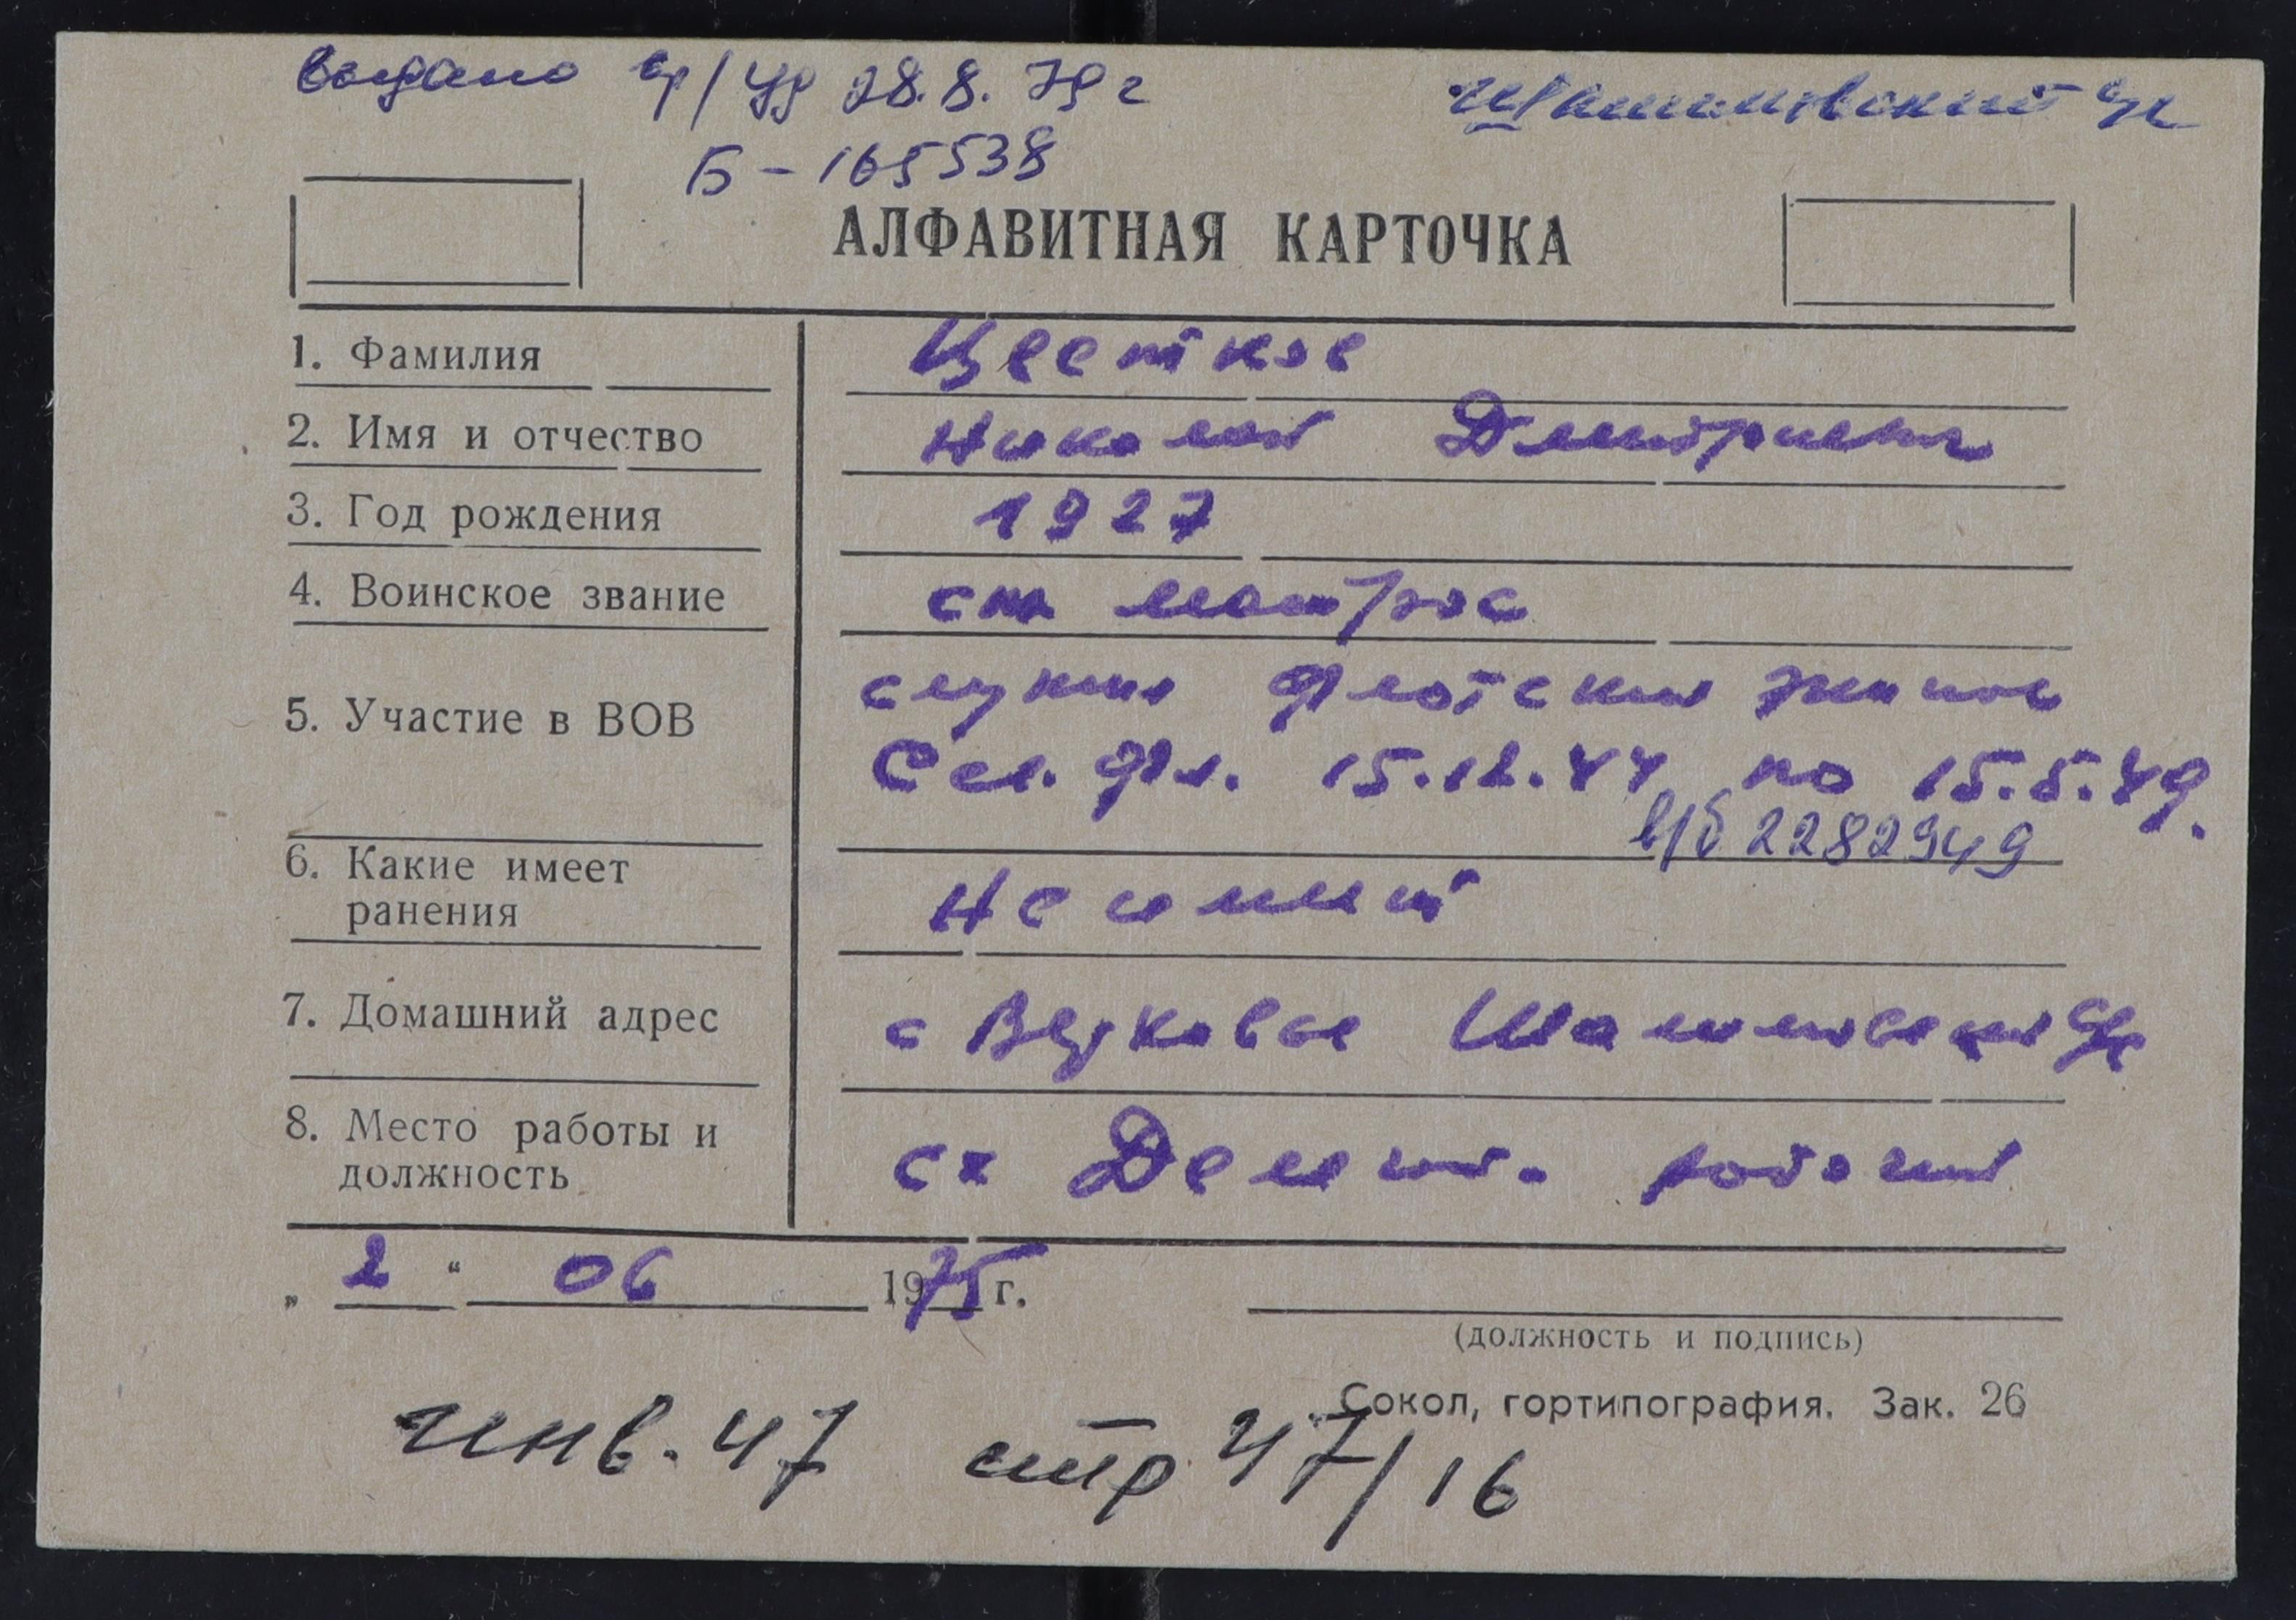 выдано ср/уд 28.8.79 г
Б-165538
АЛФАВИТНАЯ КАРТОЧКА
1. Фамилия Цветков
2. Имя и отчество Николай Дмитриевич
3. Год рождения 1927
4. Воинское звание матрос
5. Участие в ВОВ служил флотский экипаж
фл. 15.12.44 по 15.5.49.
в/б 2282949
6. Какие имеет Не имеет
ранения
7. Домашний адрес с
8. Место работы и рабочий
должность
„ 2 “ 06 1975 г.
(должность и подпись)
Сокол, гортипография. Зак. 26
инв. 47 стр 47/16